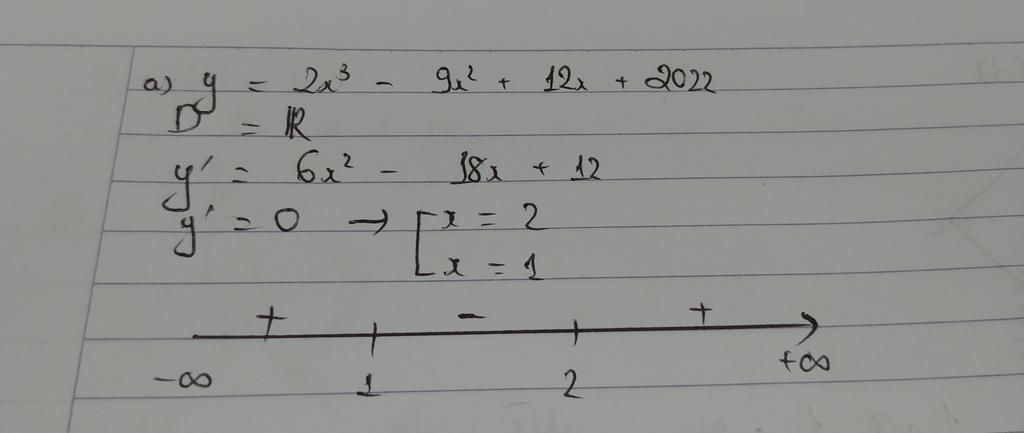 a) y = 2x³ - 9x² + 12x + 2022
D = ℝ
y' = 6x² - 18x + 12
y' = 0 → [ x = 2
x = 1
+ - +
-∞ 1 2 +∞